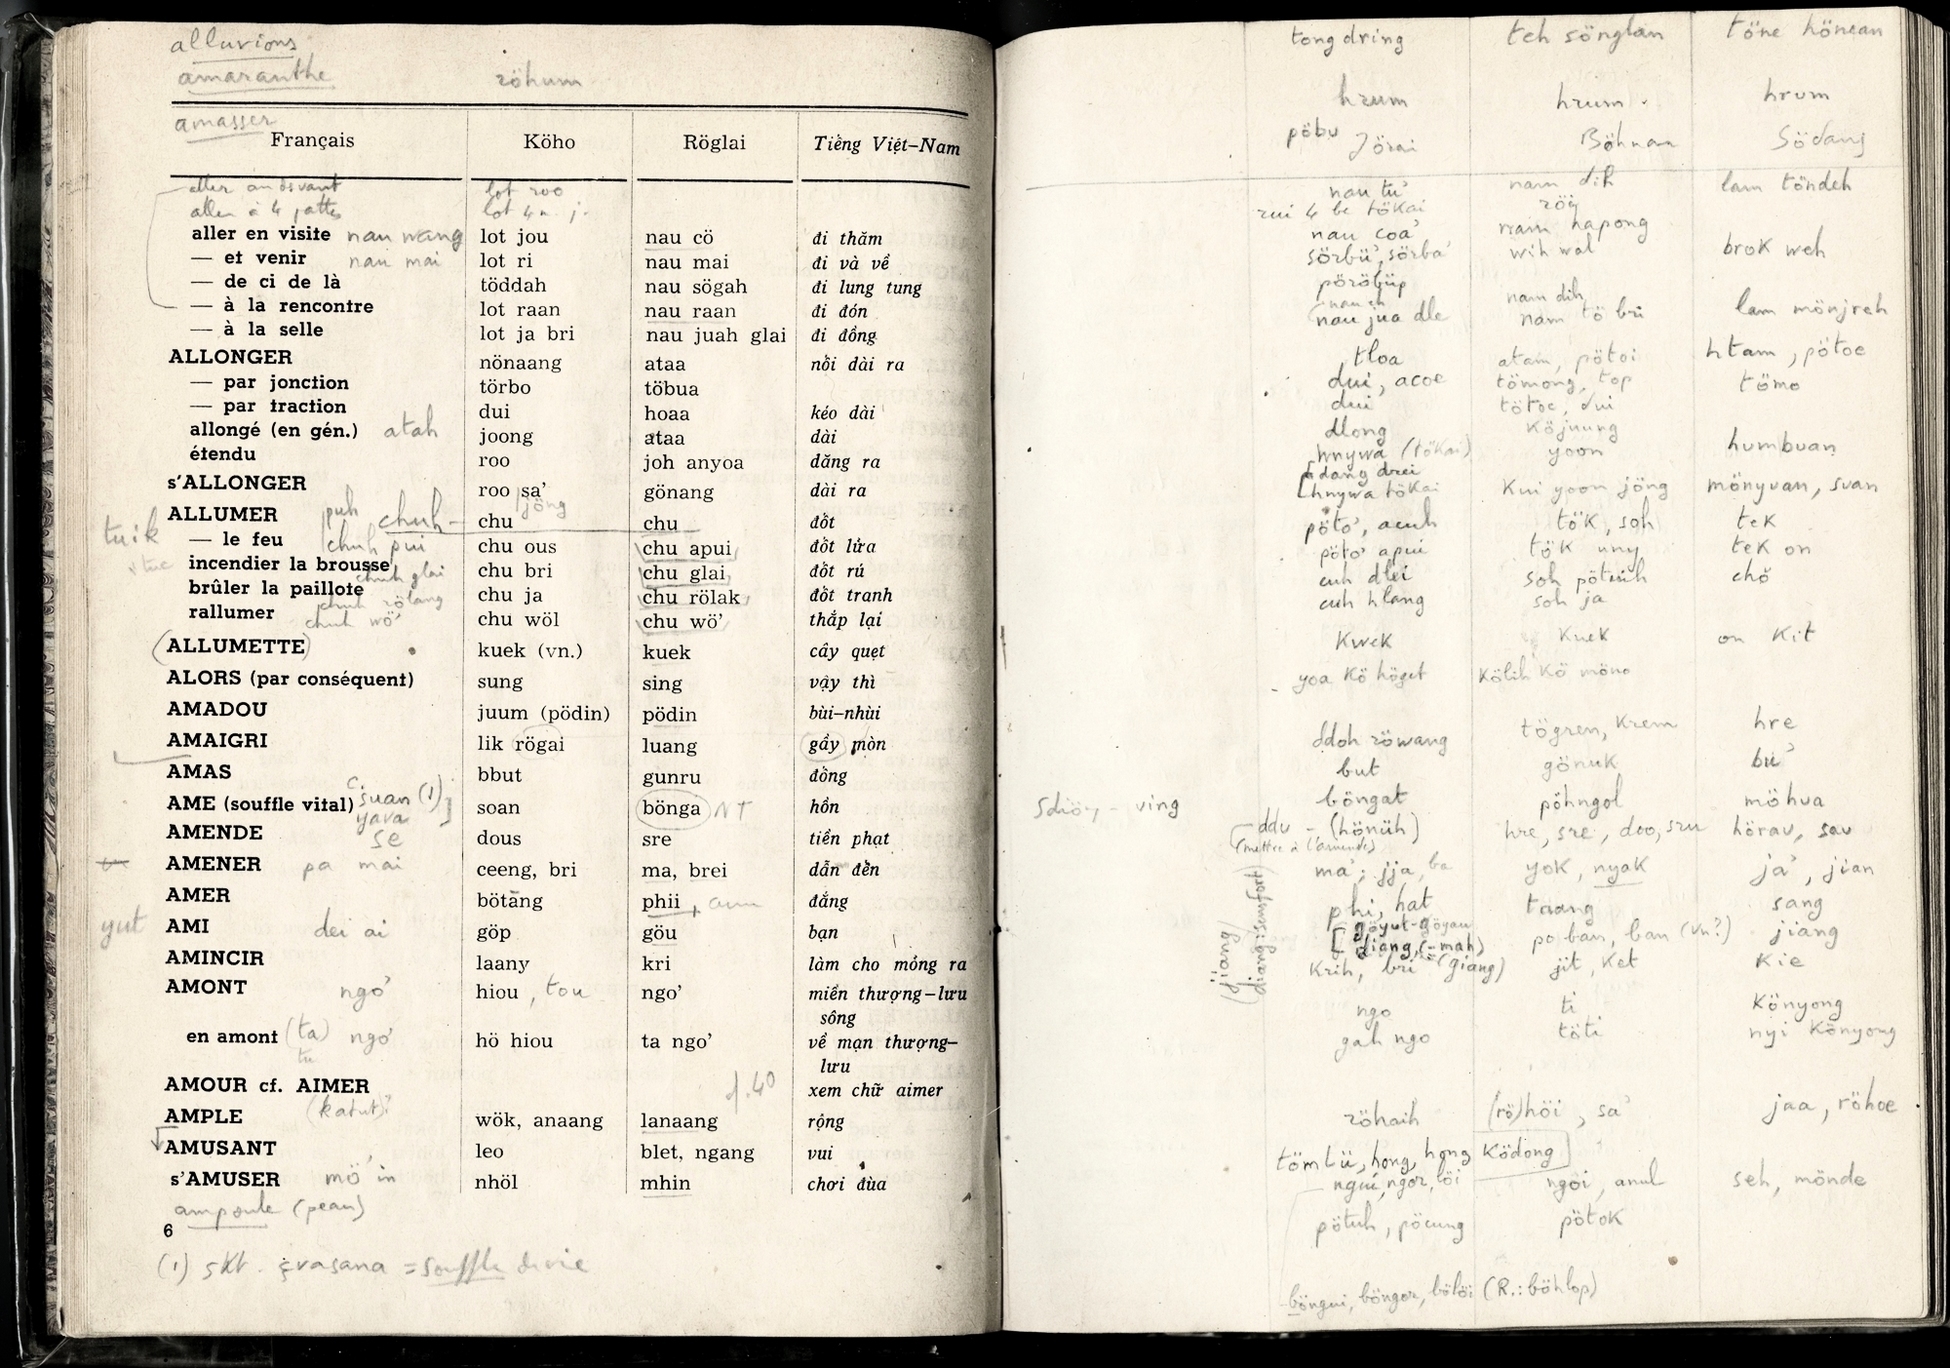 alluvions
amaranthe röhum
amasser
Français Köho Röglai Tiếng Việt-Nam
aller au devant lot roo
aller à 4 pattes lot 4 n. j.
aller en visite nau wang lot jou nau cö đi thăm
— et venir nau mai lot ri nau mai đi và về
— de ci de là töddah nau sögah đi lung tung
— à la rencontre lot raan nau raan đi đón
— à la selle lot ja bri nau juah glai đi đồng
ALLONGER nönaang ataa nối dài ra
— par jonction törbo töbua
— par traction dui hoaa kéo dài
allongé (en gén.) atah joong ataa dài
étendu roo joh anyoa dăng ra
s'ALLONGER roo sa' jöng gönang dài ra
ALLUMER puh chuh chu chu đốt
tuik — le feu chuh pui chu ous chu apui đốt lửa
incendier la brousse chuh glai chu bri chu glai đốt rú
brûler la paillote chuh rölang chu ja chu rölak đốt tranh
rallumer chuh wö' chu wöl chu wö' thắp lại
(ALLUMETTE) kuek (vn.) kuek cây quẹt
ALORS (par conséquent) sung sing vậy thì
AMADOU juum (pödin) pödin bùi-nhùi
AMAIGRI lik rögai luang gầy mòn
AMAS bbut gunru đồng
AME (souffle vital) c. suan (1) yava soan bönga NT hồn
AMENDE se dous sre tiền phạt
AMENER pa mai ceeng, bri ma, brei dẫn đến
AMER bötāng phii đắng
yut AMI dei ai göp göu bạn
AMINCIR laany kri làm cho mỏng ra
AMONT ngo' hiou, tou ngo' miền thượng-lưu
sông
en amont (ta) ngo' hö hiou ta ngo' về mạn thượng-
tu lưu
AMOUR cf. AIMER p.40 xem chữ aimer
AMPLE (katut)? wök, anaang lanaang rộng
AMUSANT leo blet, ngang vui
s'AMUSER mö in nhöl mhin chơi đùa
ampoule (peau)
6
(1) skt. çvasana = souffle de vie
tong dring teh sönglan töne hönean
hrum hrum hrum
pöbu Jörai Böhnan Södang
nau tu' nam dih lam töndeh
rui 4 be tökai röi
nau coa' nam hapong
sörbu', sörba' wih wal brok weh
pöröbüp
nau jua dle nam dih nam tö bri lam mönjreh
tloa atam, pötoi htam, pötoe
dui, acoe tömong, top tömo
dui tötoe, dui
dlong köjuung
hnywa (tökai) yoon humbuan
dang drei
hnywa tökai kui yoon jöng mönyuan, suan
pöto', acuh tök, soh tek
pöto' apui tök uny tek on
cuh dlei soh pötuih chö
cuh hlang soh ja
kwek kuek on kit
yoa kö höget kölih kö möno
ddoh röwang tögren, krem hre
but gönuk bu'
sdiöng - ving böngat pöhngol möhua
ddu - (hönüh) hre, sre, doo, sru hörav, sav
(mettre à l'amende)
ma', jja, ba yok, nyak ja', jian
phi, hat taang sang
göyut-göyau
(jiang) djang, (-mah) po ban, ban (vn?) jiang
krih, bri (giang) jit, ket kie
ngo ti könyong
gah ngo töti nyi könyong
röhaih (rö)höi, sa' jaa, röhoe
tömlü, hong, hong ködong
ngui, ngor, löi ngöi, anul seh, mönde
pötuh, pöcung pötok
böngui, böngor, bölöi (R.: böhlop)